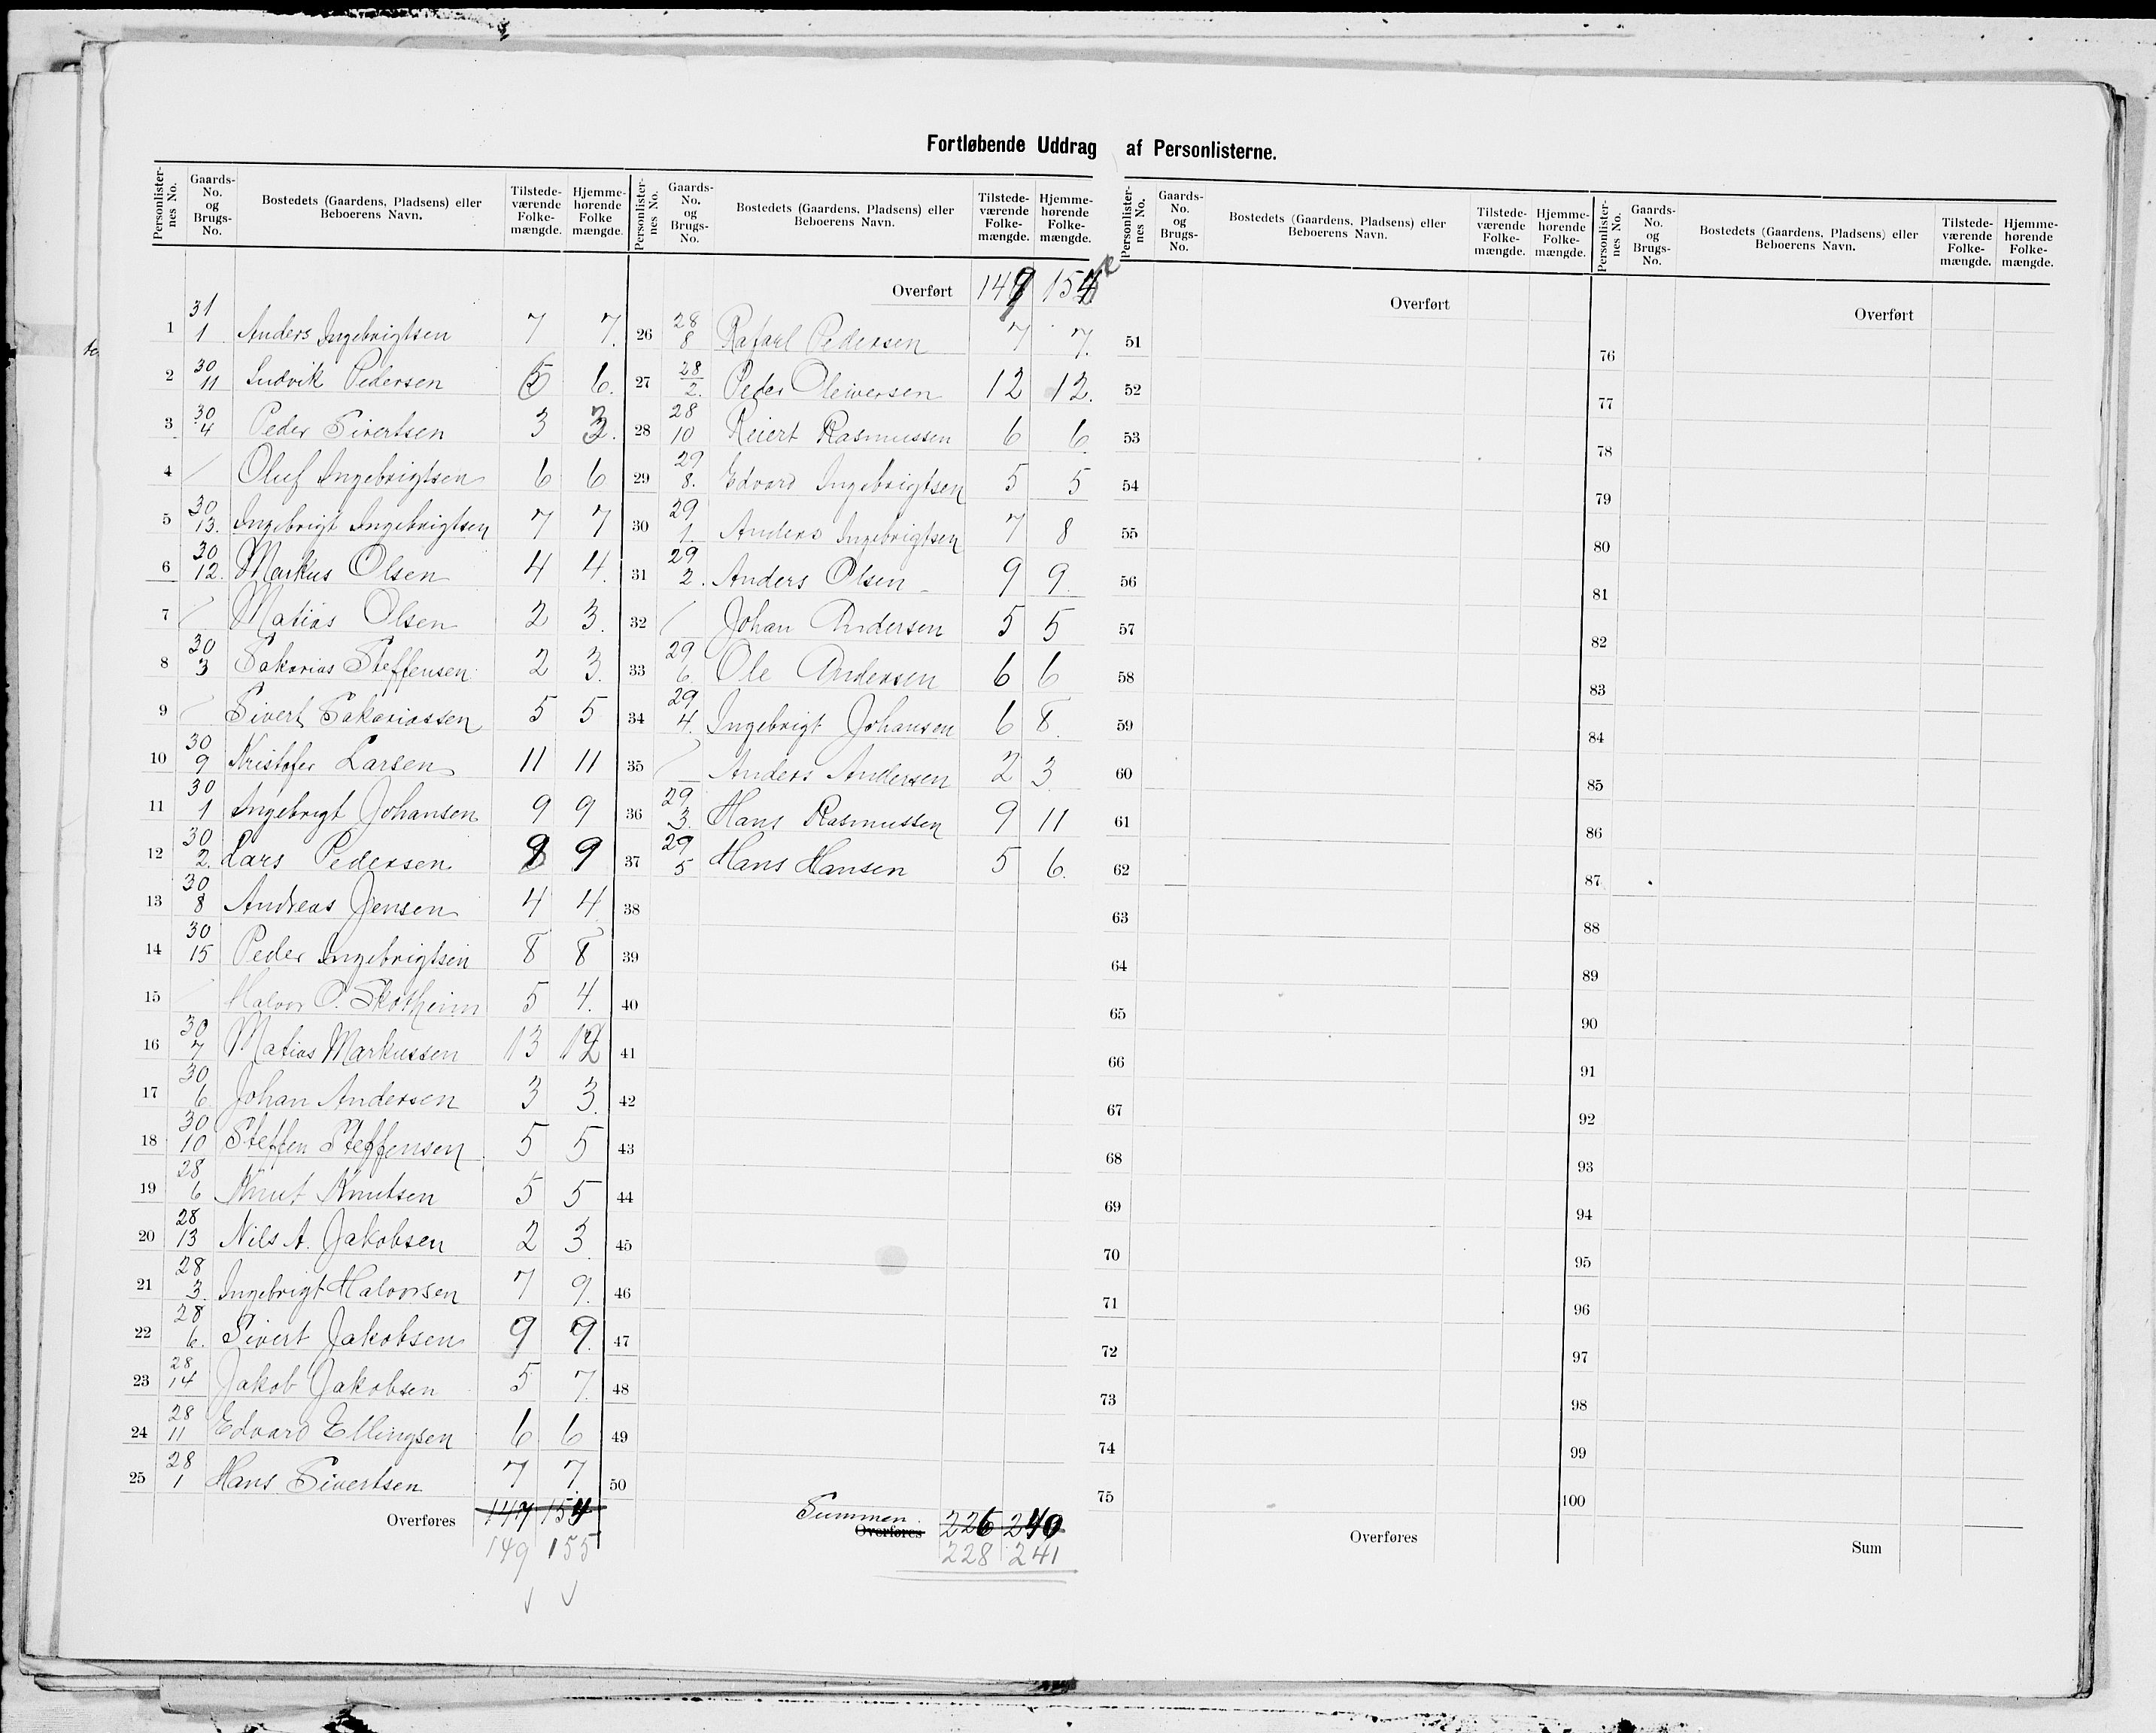 Fortløbende Uddrag af Personlisterne.
Personlisternes No. Gaards-No. og Brugs-No. Bostedets (Gaardens, Pladsens) eller Beboerens Navn. Tilstedeværende Folkemængde. Hjemmehørende Folkemængde.
1 31/1 Anders Ingebrigtsen 7 7.
2 30/11 Ludvik Pedersen 6 6.
3 30/4 Peder Sivertsen 3 3.
4 / Oluf Ingebrigtsen 6 6
5 30/13. Ingebrigt Ingebrigtsen 7 7
6 30/12. Markus Olsen 4 4.
7 / Matias Olsen 2 3.
8 30/3 Sakarias Steffensen 2 3.
9 / Sivert Sakariassen 5 5
10 30/9 Kristofer Larsen 11 11
11 30/1 Ingebrigt Johansen 9 9
12 30/2. Lars Pedersen 9 9
13 30/8 Andreas Jensen 4 4
14 30/15 Peder Ingebrigtsen 8 8
15 / Halvor O. Skotheim 5 4.
16 30/7 Matias Markussen 13 12
17 30/6 Johan Andersen 3 3.
18 30/10 Steffen Steffensen 5 5
19 28/6 Knut Knutsen 5 5
20 28/13 Nils A. Jakobsen 2 3.
21 28/3. Ingebrigt Halvorsen 7 9.
22 28/6. Sivert Jakobsen 9 9.
23 28/14 Jakob Jakobsen 5 7.
24 28/11 Edvard Ellingsen 6 6
25 28/1 Hans Sivertsen 7 7.
Overføres 147 154
149 155
Personlisternes No. Gaards-No. og Brugs-No. Bostedets (Gaardens, Pladsens) eller Beboerens Navn. Tilstedeværende Folkemængde. Hjemmehørende Folkemængde.
Overført 149 154
26 28/8 Rafael Pedersen 7 7.
27 28/2. Peder Oleiversen 12 12.
28 28/10 Reiert Rasmussen 6 6
29 29/8. Edvard Ingebrigtsen 5 5
30 29/1. Anders Ingebrigtsen 7 8
31 29/2. Anders Olsen 9 9.
32 / Johan Andersen 5 5
33 29/6. Ole Andersen 6 6
34 29/4. Ingebrigt Johansen 6 8.
35 / Anders Andersen 2 3
36 29/3. Hans Rasmussen 9 11
37 29/5 Hans Hansen 5 6.
38
39
40
41
42
43
44
45
46
47
48
49
50
Summen.
Overføres 226 240
228 241
Personlisternes No. Gaards-No. og Brugs-No. Bostedets (Gaardens, Pladsens) eller Beboerens Navn. Tilstedeværende Folkemængde. Hjemmehørende Folkemængde.
Overført
51
52
53
54
55
56
57
58
59
60
61
62
63
64
65
66
67
68
69
70
71
72
73
74
75
Overføres
Personlisternes No. Gaards-No. og Brugs-No. Bostedets (Gaardens, Pladsens) eller Beboerens Navn. Tilstedeværende Folkemængde. Hjemmehørende Folkemængde.
Overført
76
77
78
79
80
81
82
83
84
85
86
87
88
89
90
91
92
93
94
95
96
97
98
99
100
Sum